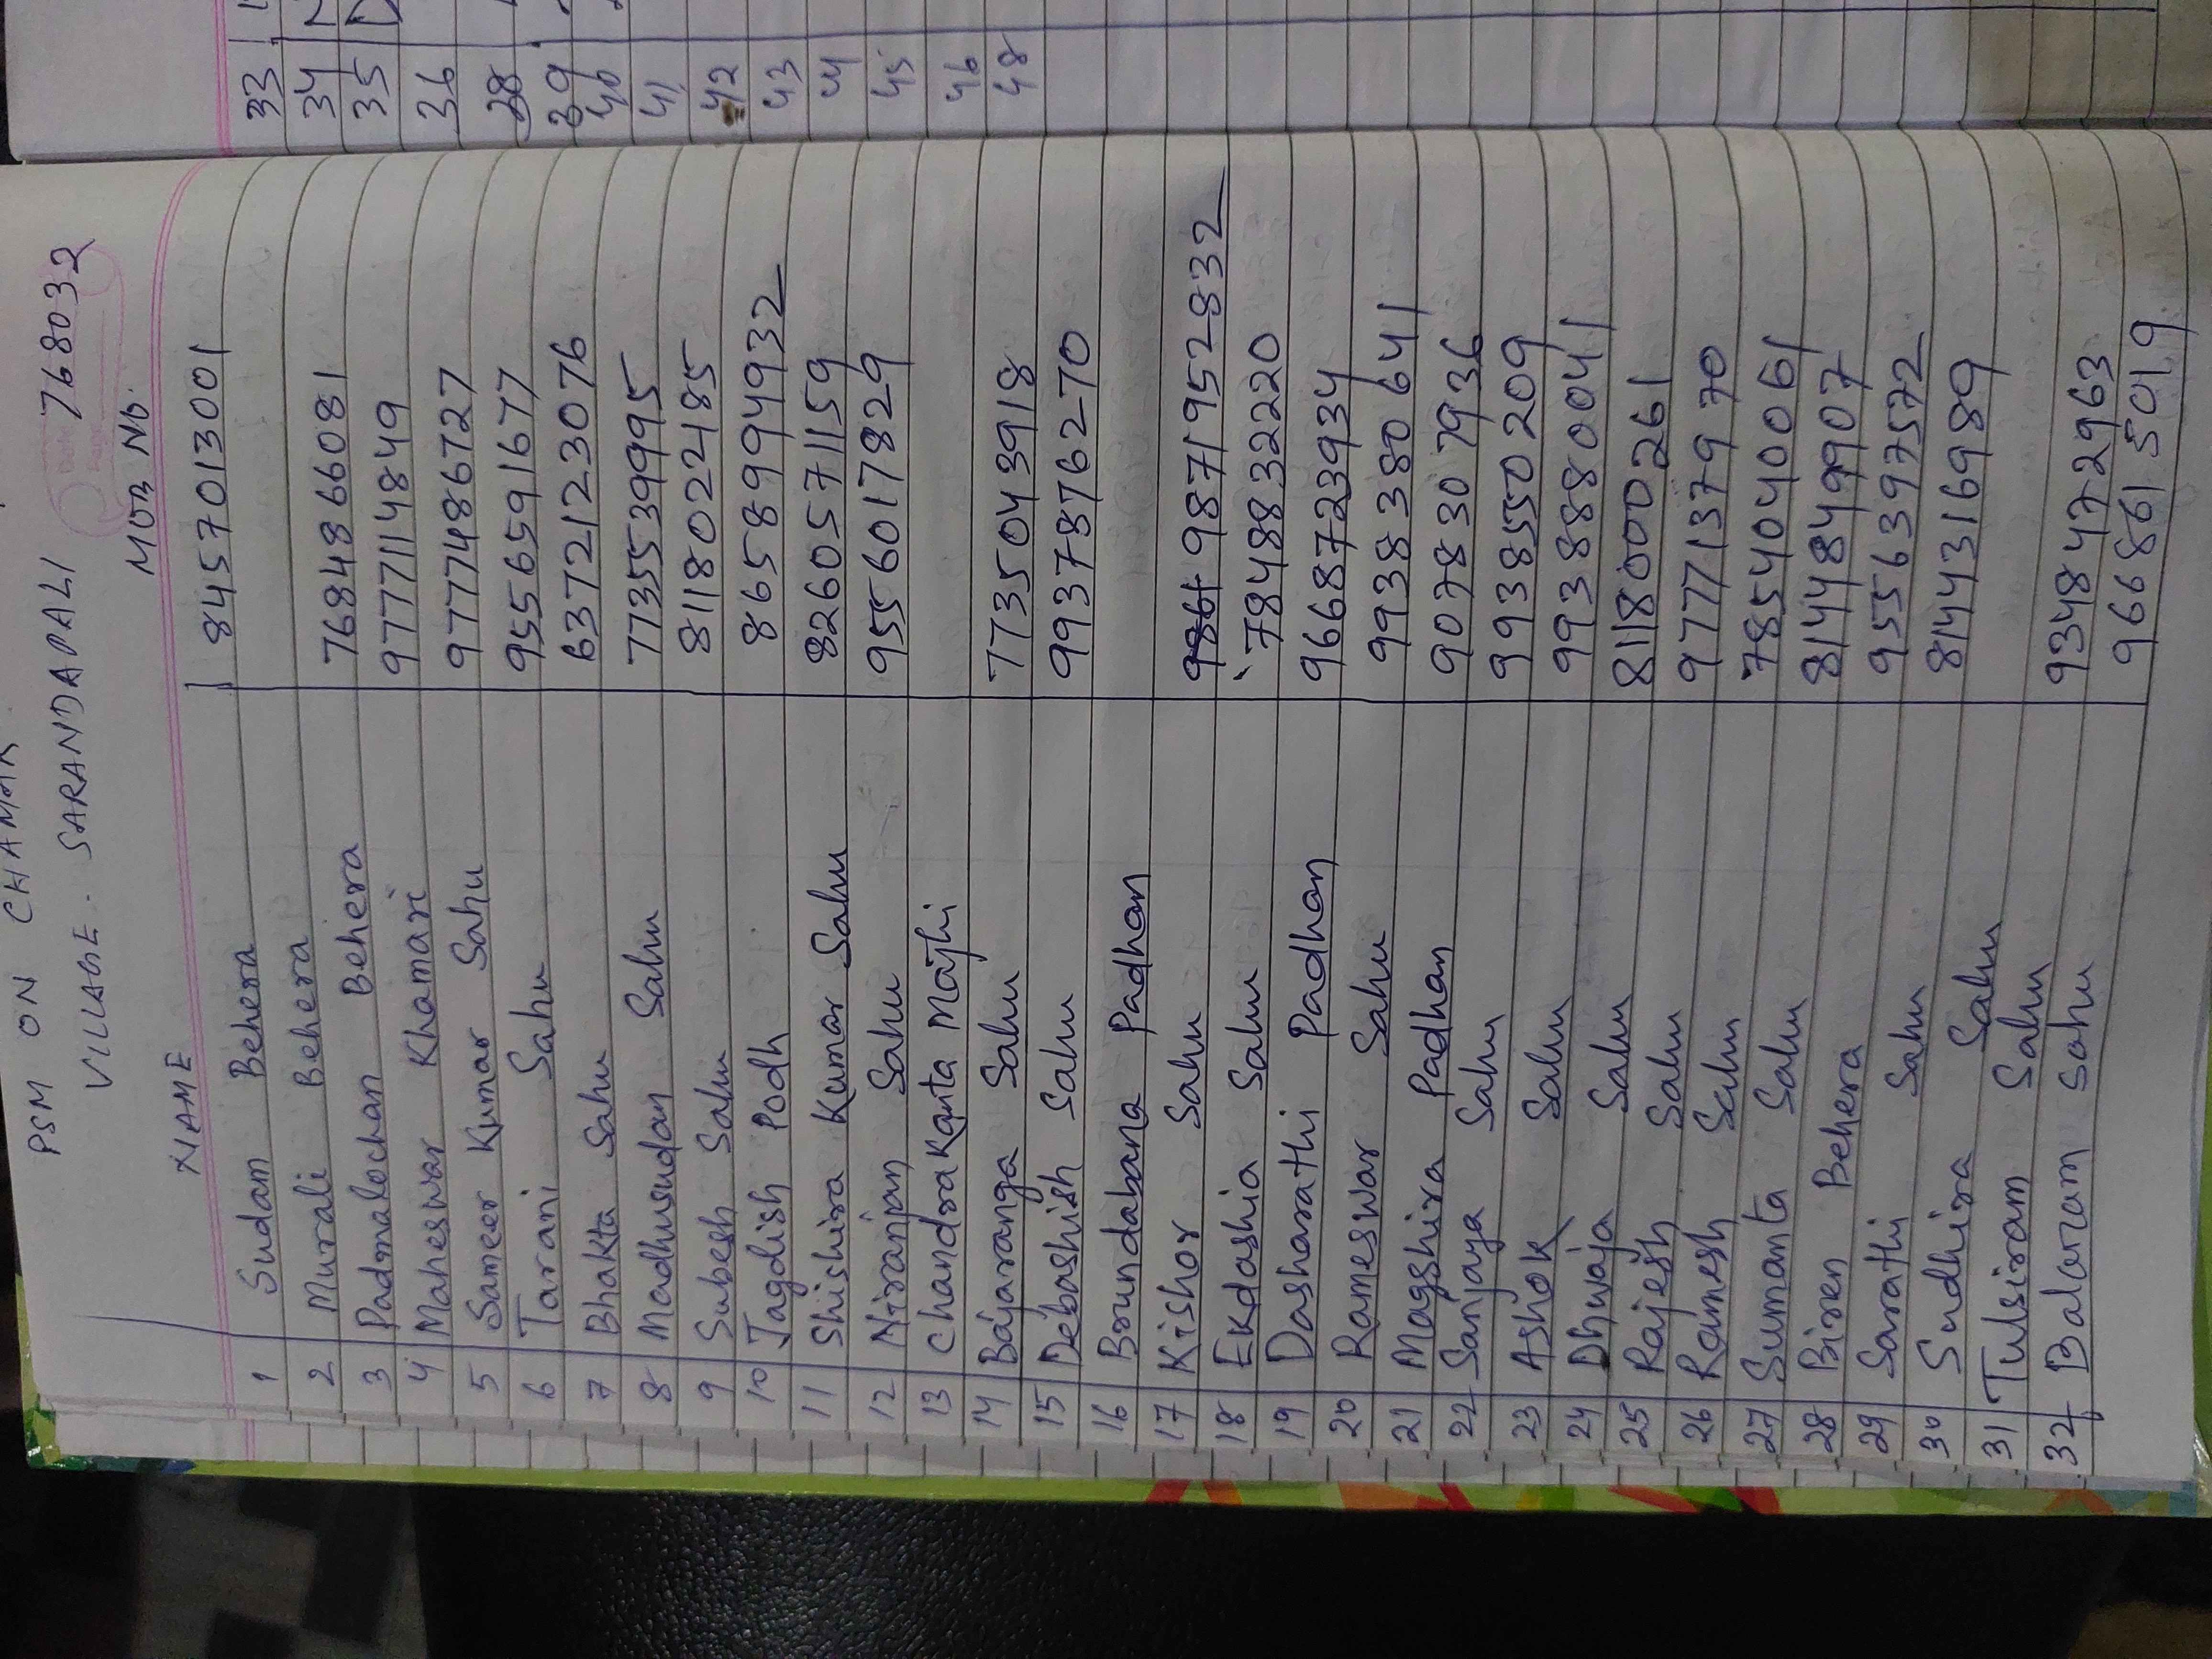 PSM ON CHAMAK
VILLAGE. SARANDAPALI 768032
NAME MOB No.
1 Sudam Behera 8457013001
2 Murali Behera
3 Padmalochan Behera 7684866081
4 Maheswar Khamari 9777114849
5 Sameer Kumar Sahu 9777486727
6 Tarani Sahu 9556591677
7 Bhakta Sahu 6372123076
8 Madhusudan Sahu 7735539995
9 Subesh Sahu 8118022485
10 Jagdish Podh 8658994932
11 Shishira Kumar Sahu 8260571159
12 Niranjan Sahu 9556017829
13 Chandrakanta Majhi
14 Bajaranga Sahu 7735043918
15 Debashish Sahu 9937876270
16 Brundabana Padhan
17 Kishor Sahu 9861 9871952832
18 Ekdashia Sahu 7848832220
19 Dasharathi Padhan 9668723934
20 Rameswar Sahu 9938380641
21 Magshira Padhan 9078307936
22 Sanjaya Sahu 9938550209
23 Ashok Sahu 9938880041
24 Dhwaja Sahu 8118000261
25 Rajesh Sahu 9777137970
26 Ramesh Sahu 7854040061
27 Sumanta Sahu 8144849907
28 Biren Behera 9556397572
29 Sarathi Sahu 8144316989
30 Sudhira Sahu
31 Tulsiram Sahu 9348472963
32 Balaram Sahu 9668615019
33
34
35
36
38
39
40
41
42
43
44
45
46
48